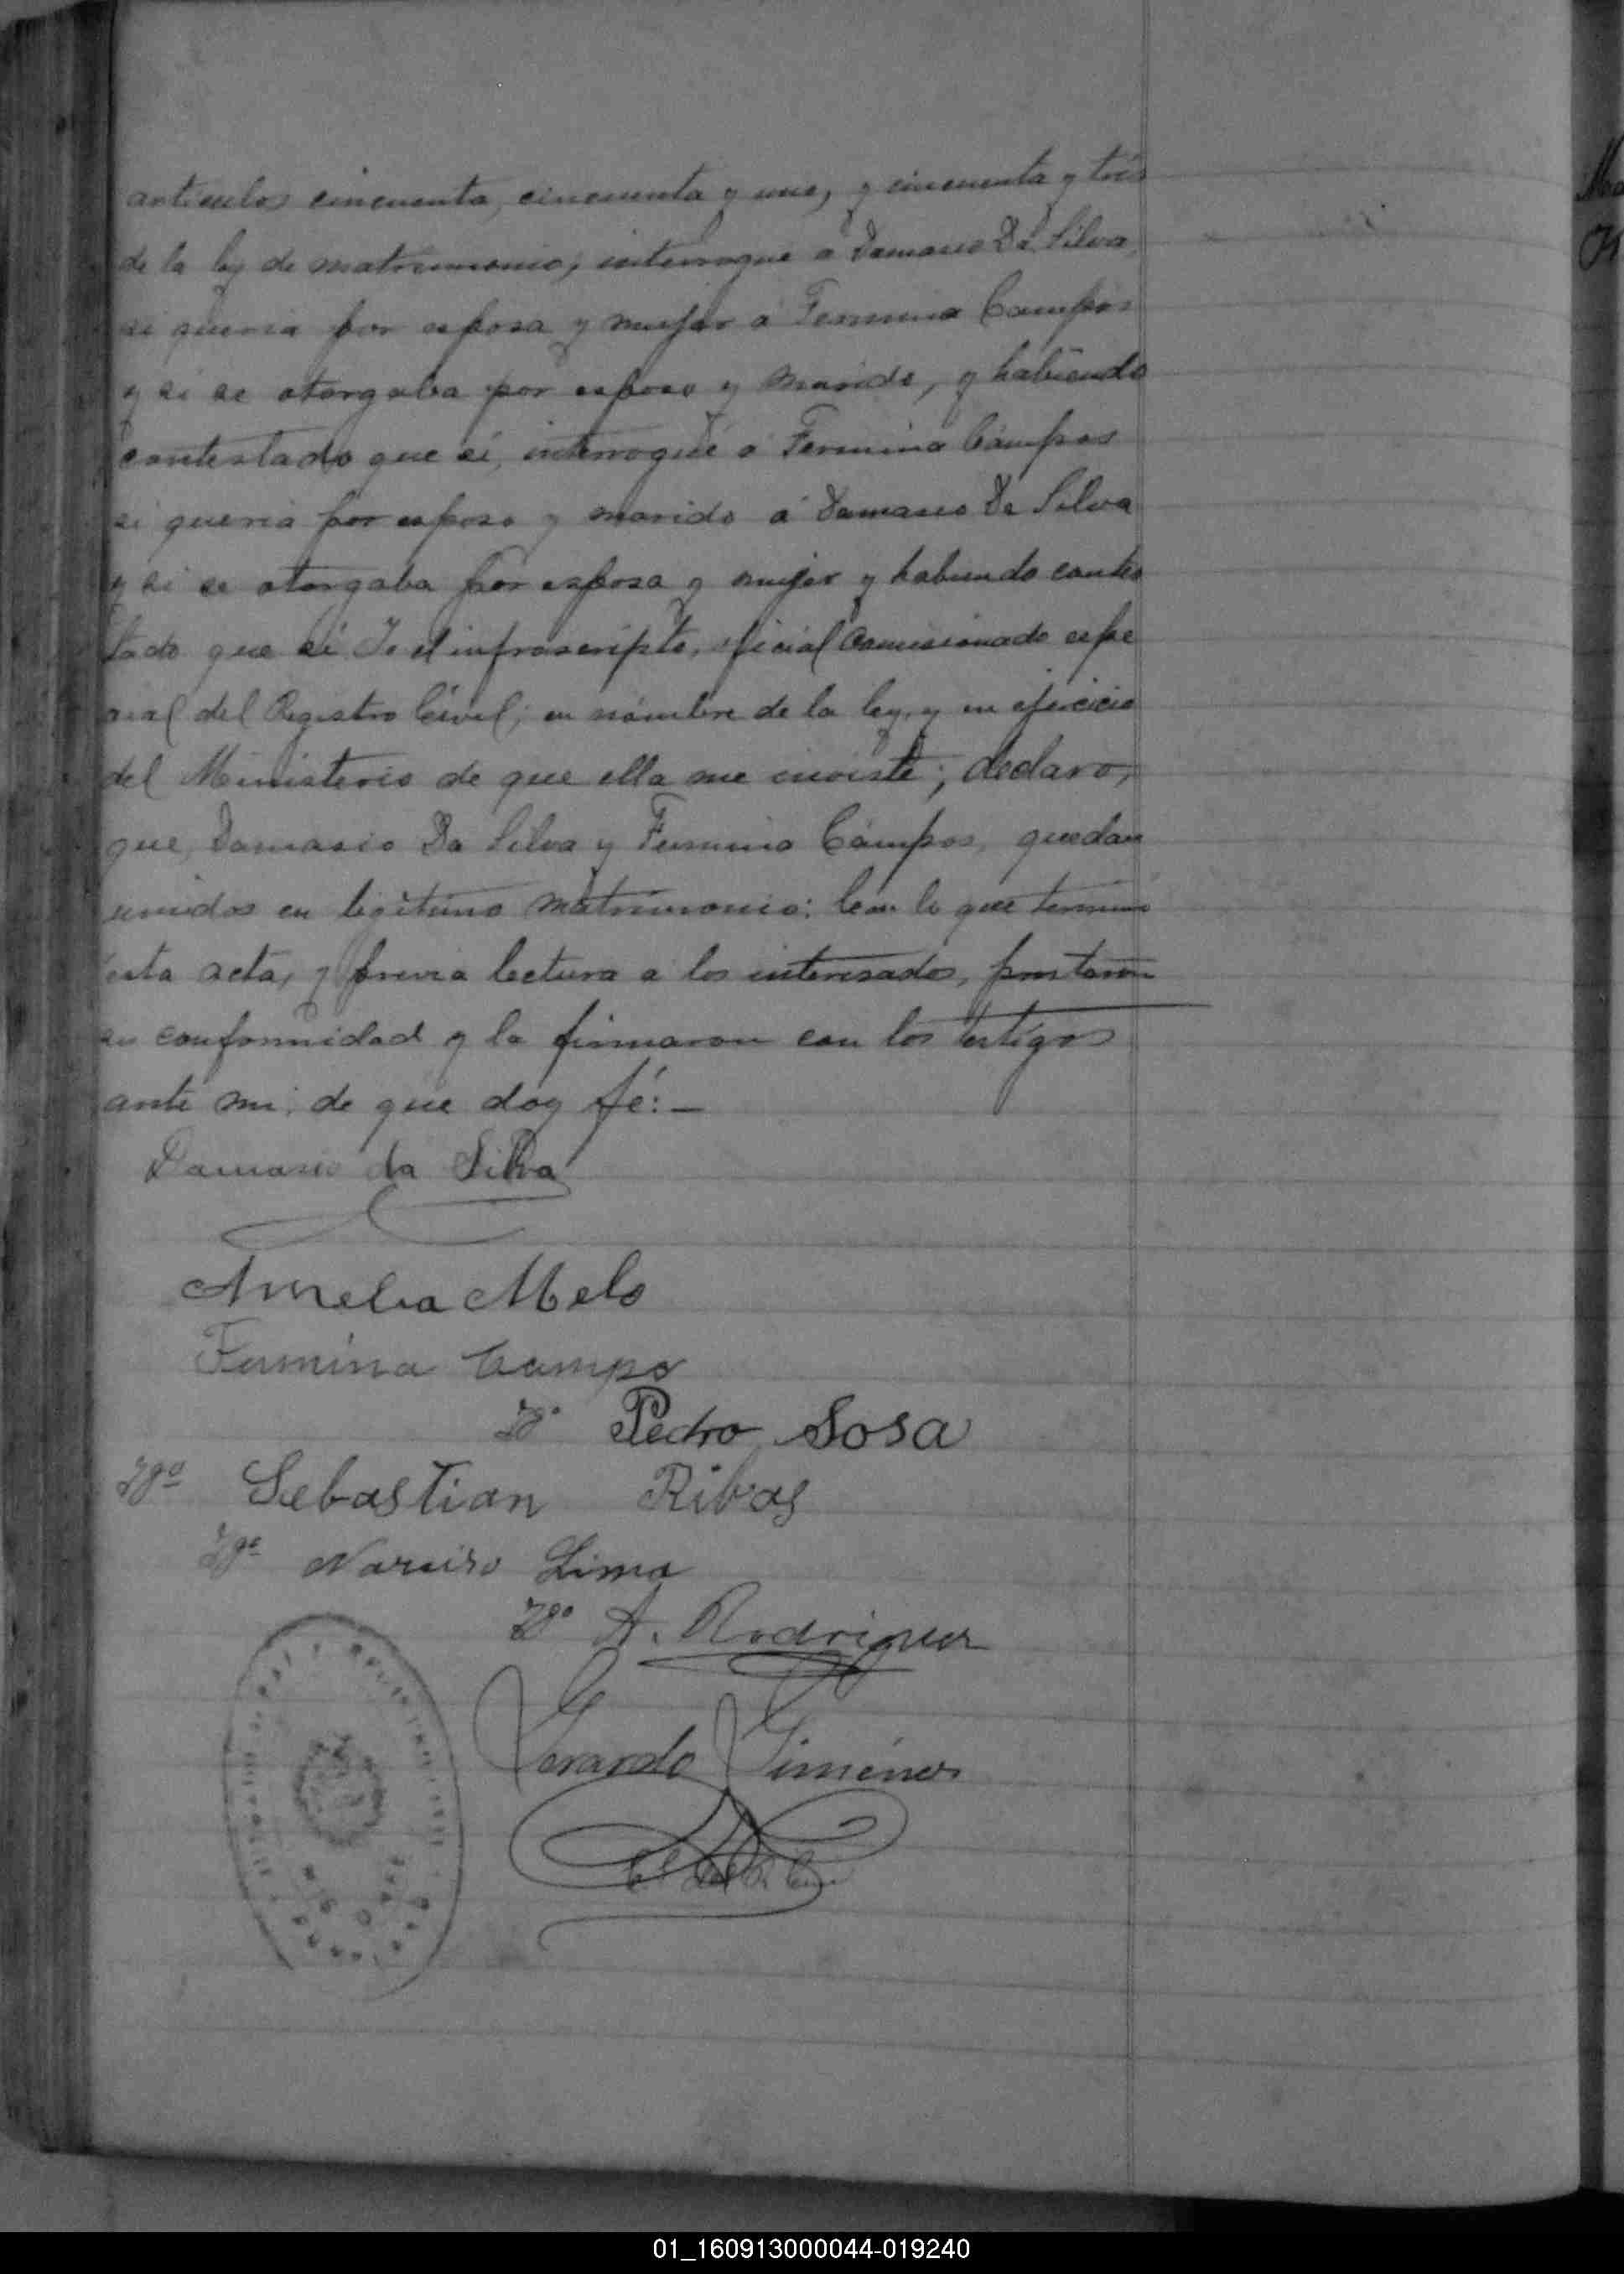 artículos cincuenta, cincuenta y uno, y cincuenta y trés
de la ley de matrimonio, interrogue a Damasio Da Silva,
si queria por esposa y mujer á Fermina Campos
y si se otorgaba por esposo y marido, y habiendo
contestado que sí, interrogué a Fermina Campos
si queria por esposo y marido á Damasio Da Silva
y si se otorgaba por esposa y mujer y habiendo contes
tado que sí Yo el infrascripto, oficial Comisionado espe
cial del Registro Civil, en nómbre de la ley, y en ejercicio
del Ministerio de que ella me enviste; declaro,
que, Damasio Da Silva y Fermina Campos, quedan
unidos en legítimo matrimonio: Con lo que terminó
ésta acta, y previa lectura a los interesados, prestaron
su conformidad y la firmaron con los testigos
ante mi, de que doy fé:—
Damasio da Silva
Amelia Melo
Fermina Campo
Tgº Pedro Sosa
Tgº Sebastian Ribas
Tgº Narciso Lima
Tgº A. Rodriguez
Gerardo Giménez
01_160913000044-019240